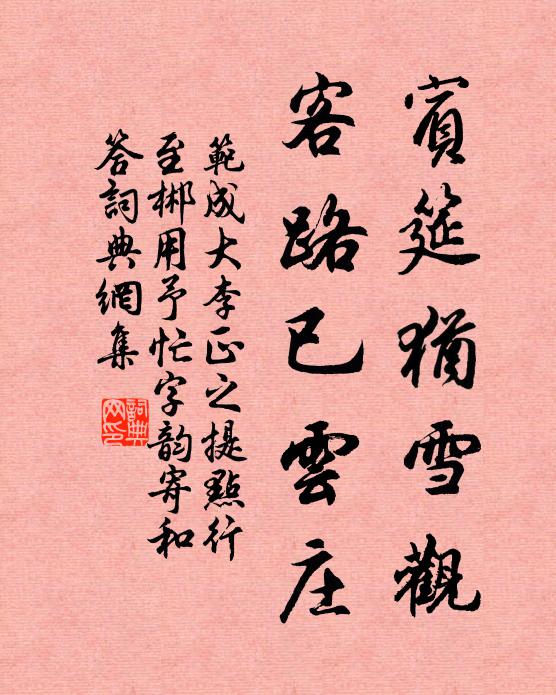 賓筵猶雪觀
客路已雲庄
範成大李正之提點行
至郴用予忙字韵寄和
答詞典網集
詞典网印